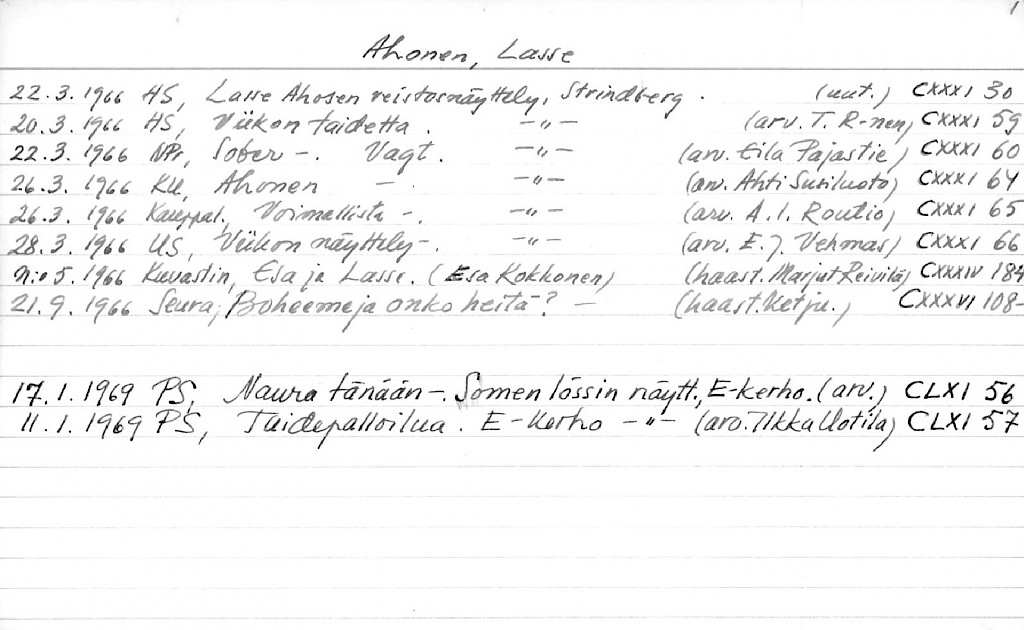 1
Ahonen, Lasse
22.3.1966 HS, Lasse Ahosen veistosnäyttely, Strindberg. (uut.) CXXXI 30
20.3.1966 HS, Viikon taidetta. -"- (arv. T. R-nen) CXXXI 59
22.3.1966 NPr, Sober -. Vagt. -"- (arv. Eila Pajastie) CXXXI 60
26.3.1966 KU, Ahonen -. -"- (arv. Ahti Susiluoto) CXXXI 64
26.3.1966 Kauppal., Voimallista -. -"- (arv. A.I. Routio) CXXXI 65
28.3.1966 US, Viikon näyttely -. -"- (arv. E.J. Vehmas) CXXXI 66
n:o 5.1966 Kuvastin, Esa ja Lasse. (Esa Kokkonen) (haast. Marjut Reivilä) CXXXIV 184
21.9.1966 Seura, Boheemeja onko heitä? - (haast. Ketju.) CXXXVI 108-
17.1.1969 PS, Naura tänään -. Somen lössin näytt., E-kerho. (arv.) CLXI 56
11.1.1969 PS, Taidepalloilua. E-kerho -"- (arv. Ilkka Uotila) CLXI 57